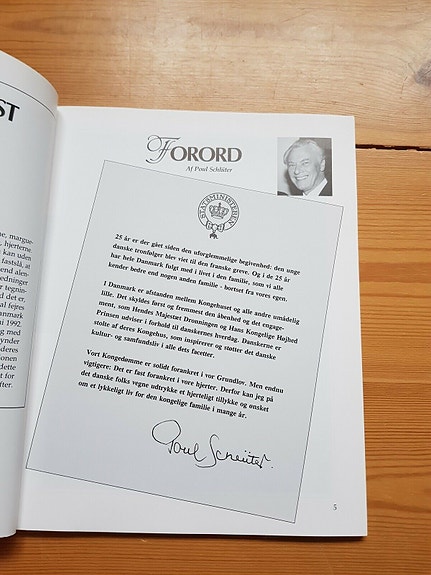 ST
margue-
hjerterne
kan uden
fastslå, at
end alen-
edninger
tegnin-
d det er,
al fejres
anmark
uni 1992.
g med
ynder
deres
onen
dette
t for
fter.
FORORD
Af Poul Schlüter
STATSMINISTEREN
25 år er der gået siden den uforglemmelige begivenhed: den unge
danske tronfølger blev viet til den franske greve. Og i de 25 år
har hele Danmark fulgt med i livet i den familie, som vi alle
kender bedre end nogen anden familie - bortset fra vores egen.
I Danmark er afstanden mellem Kongehuset og alle andre umådelig
lille. Det skyldes først og fremmest den åbenhed og det engage-
ment, som Hendes Majestæt Dronningen og Hans Kongelige Højhed
Prinsen udviser i forhold til danskernes hverdag. Danskerne er
stolte af deres Kongehus, som inspirerer og støtter det danske
kultur- og samfundsliv i alle dets facetter.
Vort Kongedømme er solidt forankret i vor Grundlov. Men endnu
vigtigere: Det er fast forankret i vore hjerter. Derfor kan jeg på
det danske folks vegne udtrykke et hjerteligt tillykke og ønsket
om et lykkeligt liv for den kongelige familie i mange år.
Poul Schlüter.
5